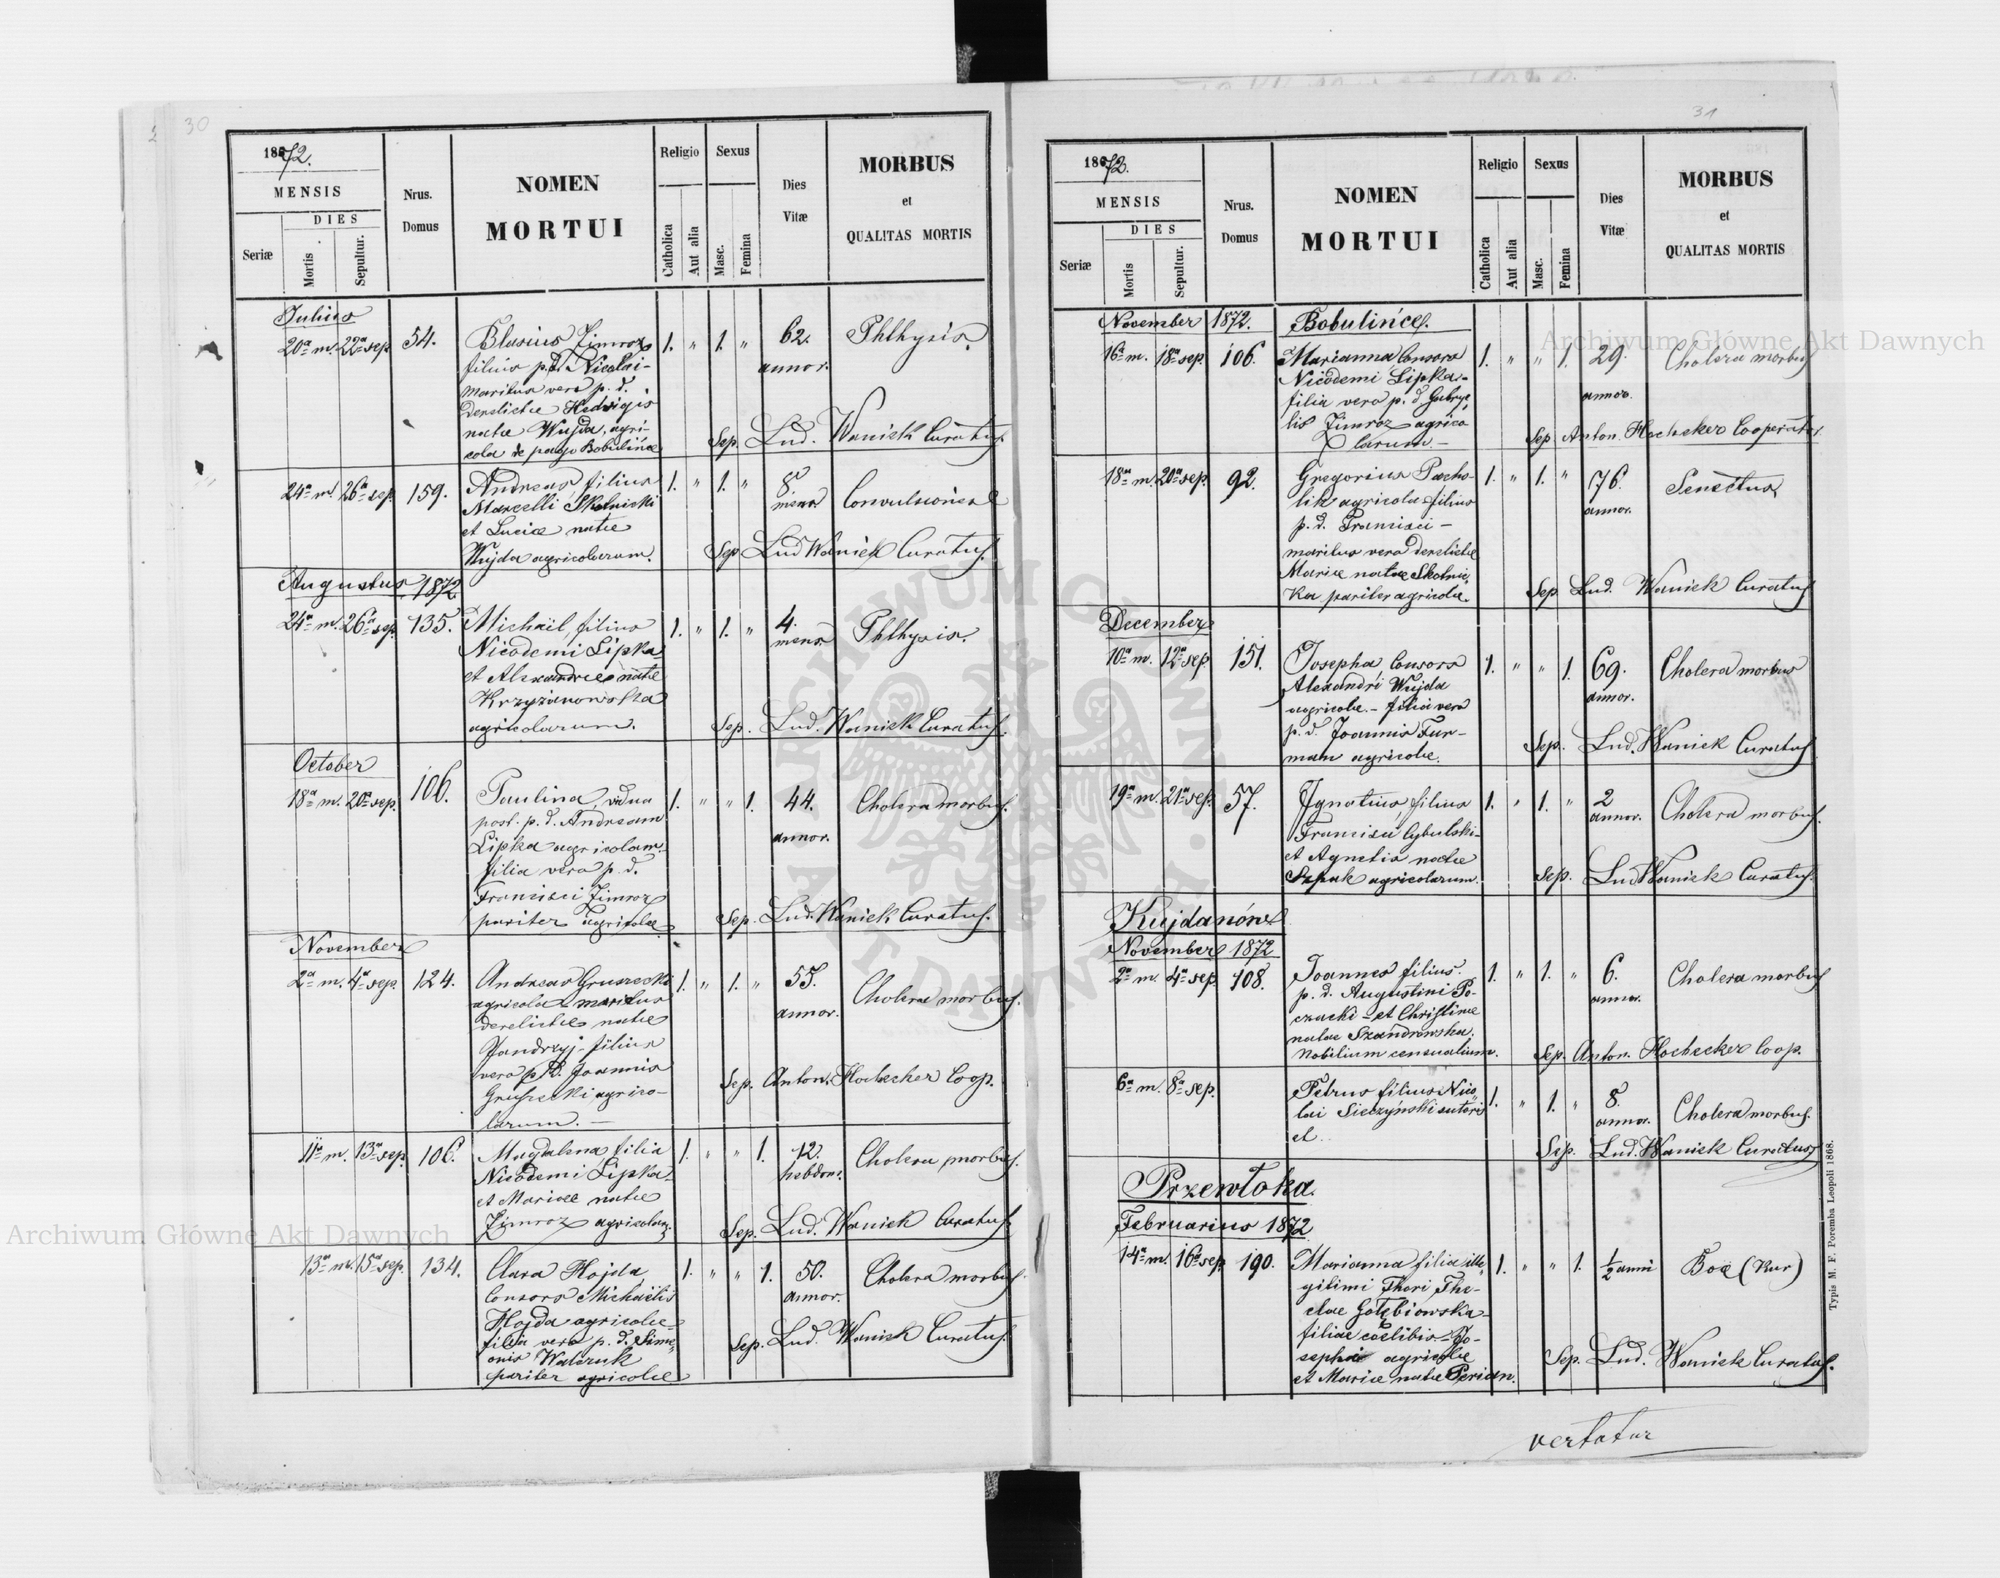 30
1872.
MENSIS
DIES
Seriæ
Mortis.
Sepultur.
Nrus.
Domus
NOMEN
MORTUI
Religio
Catholica
Aut alia
Sexus
Masc.
Femina
Dies
Vitæ
MORBUS
et
QUALITAS MORTIS
Julius
20a m. 22a sep. 54. Blasius Zimroz 1. " 1. " 62. Phthysis.
filius p.d. Nicolai- annor.
maritus vero p. d.
derelictæ Hedvigis
natæ Wujda, agri-
cola de pago Bobulińce Sep. Lud. Waniek Curatus.
24a m. 26a sep. 159. Andreas filius 1. " 1. " 8 Convulsiones
Marcelli Skolnicki mens.
et Luciæ natæ
Wujda agricolarum. Sep. Lud Waniek Curatus.
Augustus 1872.
24a m. 26a sep. 135. Michaël, filius 1. " 1. " 4. Phthysis.
Nicodemi Lipka mens.
et Alexandræ natæ
Krzyżanowska
agricolarum. Sep. Lud. Waniek Curatus.
October
18a m. 20a sep. 106. Paulina, vidua 1. " " 1. 44. Cholera morbus.
post. p. d. Andream annor.
Lipka agricolam-
filia vero p. d.
Francisci Zimroz
pariter agricolæ Sep. Lud. Waniek Curatus.
November
2a m. 4a sep. 124. Andreas Gruszecki 1. " 1. " 55. Cholera morbus.
agricola maritus annor.
derelictæ natæ
Jandrzyj- filius
vero p. d. Joannis
Gruszecki agrico-
larum. Sep. Anton. Hochecker Coop.
11a m. 13a sep. 106. Magdalena filia 1. " " 1. 12. Cholera morbus.
Nicodemi Lipka hebdom.
et Mariæ natæ
Zimroz agricolar. Sep. Lud. Waniek Curatus.
13a m. 15a sep. 134. Clara Hojda 1. " " 1. 50. Cholera morbus.
Consors Michaëlis annor.
Hojda agricolæ-
filia vero p. d. Sime-
onis Walczuk
pariter agricolæ Sep. Lud. Waniek Curatus.
31
1872.
MENSIS
DIES
Seriæ
Mortis
Sepultur.
Nrus.
Domus
NOMEN
MORTUI
Religio
Catholica
Aut alia
Sexus
Masc.
Femina
Dies
Vitæ
MORBUS
et
QUALITAS MORTIS
November 1872. Bobulińce.
16a m. 18a sep. 106. Marianna Consors 1. " " 1. 29. Cholera morbus
Nicodemi Lipka- annor.
filia vero p. d. Gabrye-
lis Zimroz agrico
larum- Sep. Anton. Hochecker Cooperator.
18a m. 20a sep. 92. Gregorius Pacho- 1. " 1. " 76. Senectus
lik agricola filius annor.
p. d. Francisci-
maritus vero derelictæ
Mariæ natæ Skolnic-
Ka pariter agricolæ. Sep. Lud. Waniek Curatus
December
10a m. 12a sep. 151. Josepha Consors 1. " " 1. 69. Cholera morbus
Alexandri Wujda annor.
agricolæ.- filia vero
p. d. Joannis Fur-
man agricolæ. Sep. Lud. Waniek Curatus
19a m. 21a sep. 57. Ignatius, filius 1. " 1. " 2 Cholera morbus.
Francisci Cybulski- annor.
et Agnetis natæ
Szpak agricolarum. Sep. Lud Waniek Curatus.
Kujdanów
November 1872
2a m. 4a sep. 108. Joannes filius 1. " 1. " 6. Cholera morbus
p. d. Augustini Po- annor.
czacki- et Christinæ
natæ Szandrowska.
Nobilium censualium. Sep. Anton. Hochecker Coop.
6a m. 8a sep. Petrus filius Nico- 1. " 1. " 8. Cholera morbus.
lai Sieczyński sutoris annor.
et.. Sep. Lud. Waniek Curatus
Przewłoka.
Februarius 1872
14a m. 16a sep. 190. Marianna filia ille- 1. " " 1. 1/2 anni Boa (Kur)
gitimi Thori The-
clae Gołębiowska-
filiae coelibis- Jo-
sephi agricolæ
et Mariæ natæ Perian. Sep. Lud. Waniek Curatus.
vertatur
Typis M. F. Poremba Leopoli 1868.
Archiwum Główne Akt Dawnych
Archiwum Główne Akt Dawnych
ARCHIWUM GŁÓWNE AKT DAWNYCH